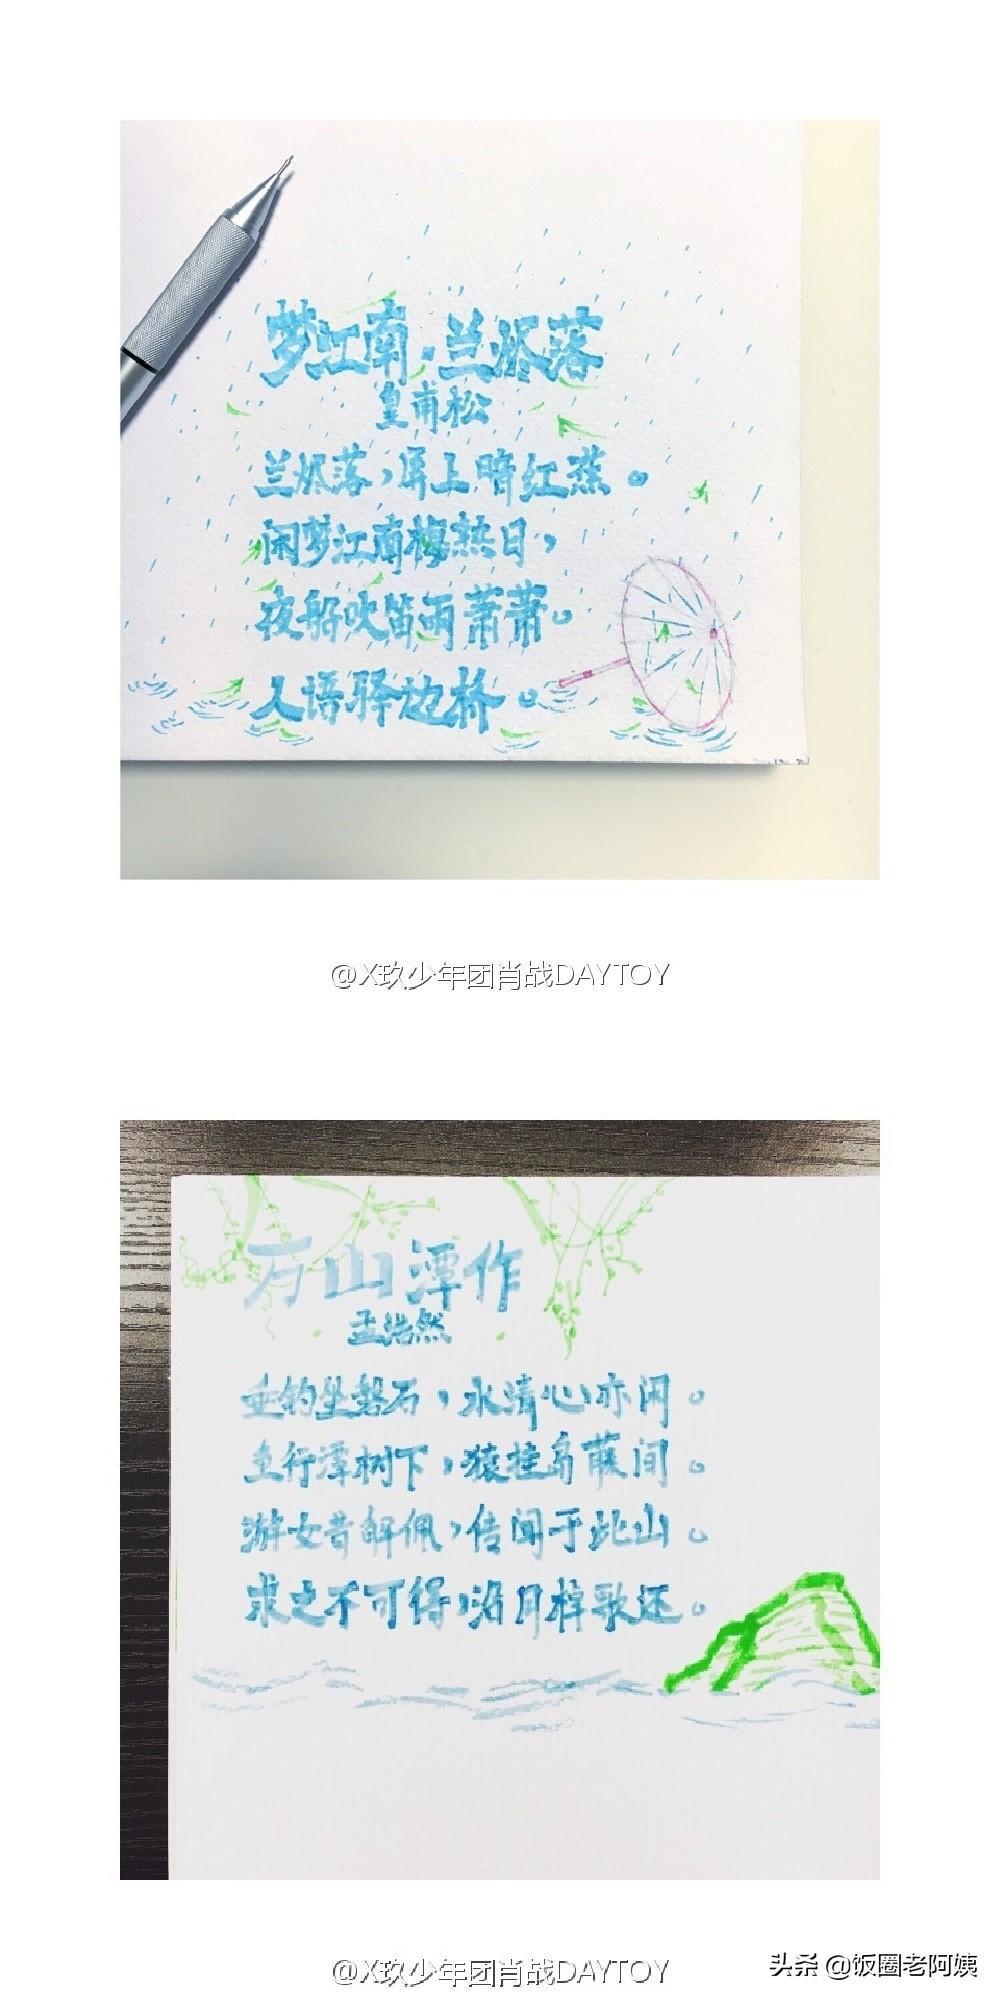 梦江南·兰烬落
皇甫松
兰烬落，屏上暗红蕉。
闲梦江南梅熟日，
夜船吹笛雨萧萧。
人语驿边桥。
@X玖少年团肖战DAYTOY
万山潭作
孟浩然
垂钓坐磐石，水清心亦闲。
鱼行潭树下，猿挂岛藤间。
游女昔解佩，传闻于此山。
求之不可得，沿月棹歌还。
@X玖少年团肖战DAYTOY
头条 @饭圈老阿姨